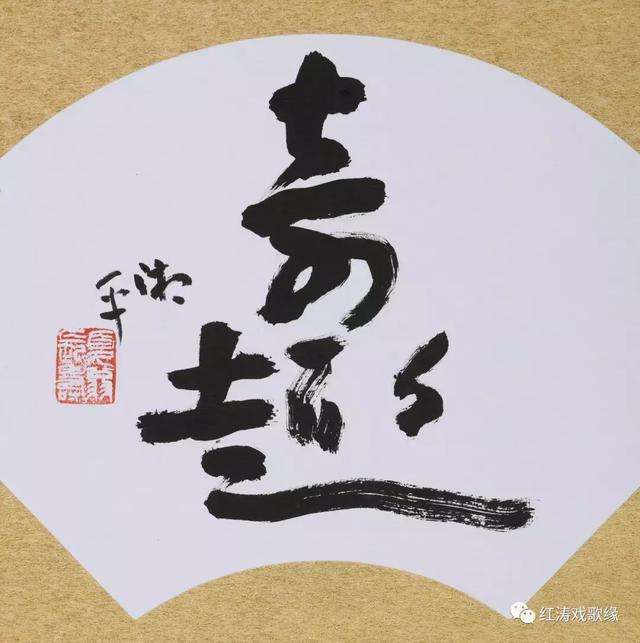 奇趣
湘平
红涛戏歌缘